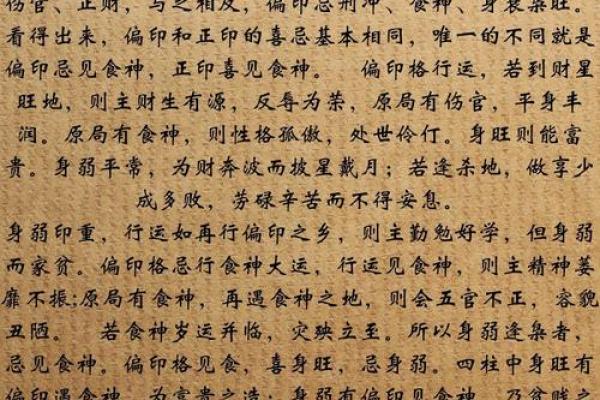 伤官、正财，与之相反，偏印忌刑冲、食神、身衰枭旺。
看得出来，偏印和正印的喜忌基本相同，唯一的不同就是
偏印忌见食神，正印喜见食神。　　偏印格行运，若到财星
旺地，则主财生有源，反辱为荣，原局有伤官，平身丰
润。原局有食神，则性格孤傲，处世伶仃。身旺则能富
贵。身弱平常，为财奔波而披星戴月；若逢杀地，做享少
成多败，劳碌辛苦而不得安息。
身弱印重，行运如再行偏印之乡，则主勤勉好学，但身弱
而家贫。偏印格忌行食神大运，行运见食神，则主精神萎
靡不振;原局有食神，再遇食神之地，则会五官不正，容貌
丑陋。　　若食神岁运并临，灾殃立至。所以身弱逢枭者，
忌见食神。偏印格见食，喜身旺，忌身弱。四柱中身旺有
偏印遇食神，为富贵之造；身弱有偏印见食神，乃贫贱之